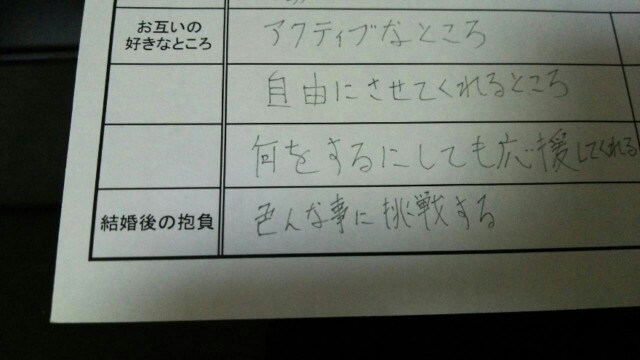 お互いの
好きなところ
アクティブなところ
自由にさせてくれるところ
何をするにしても応援してくれる
結婚後の抱負
色んな事に挑戦する